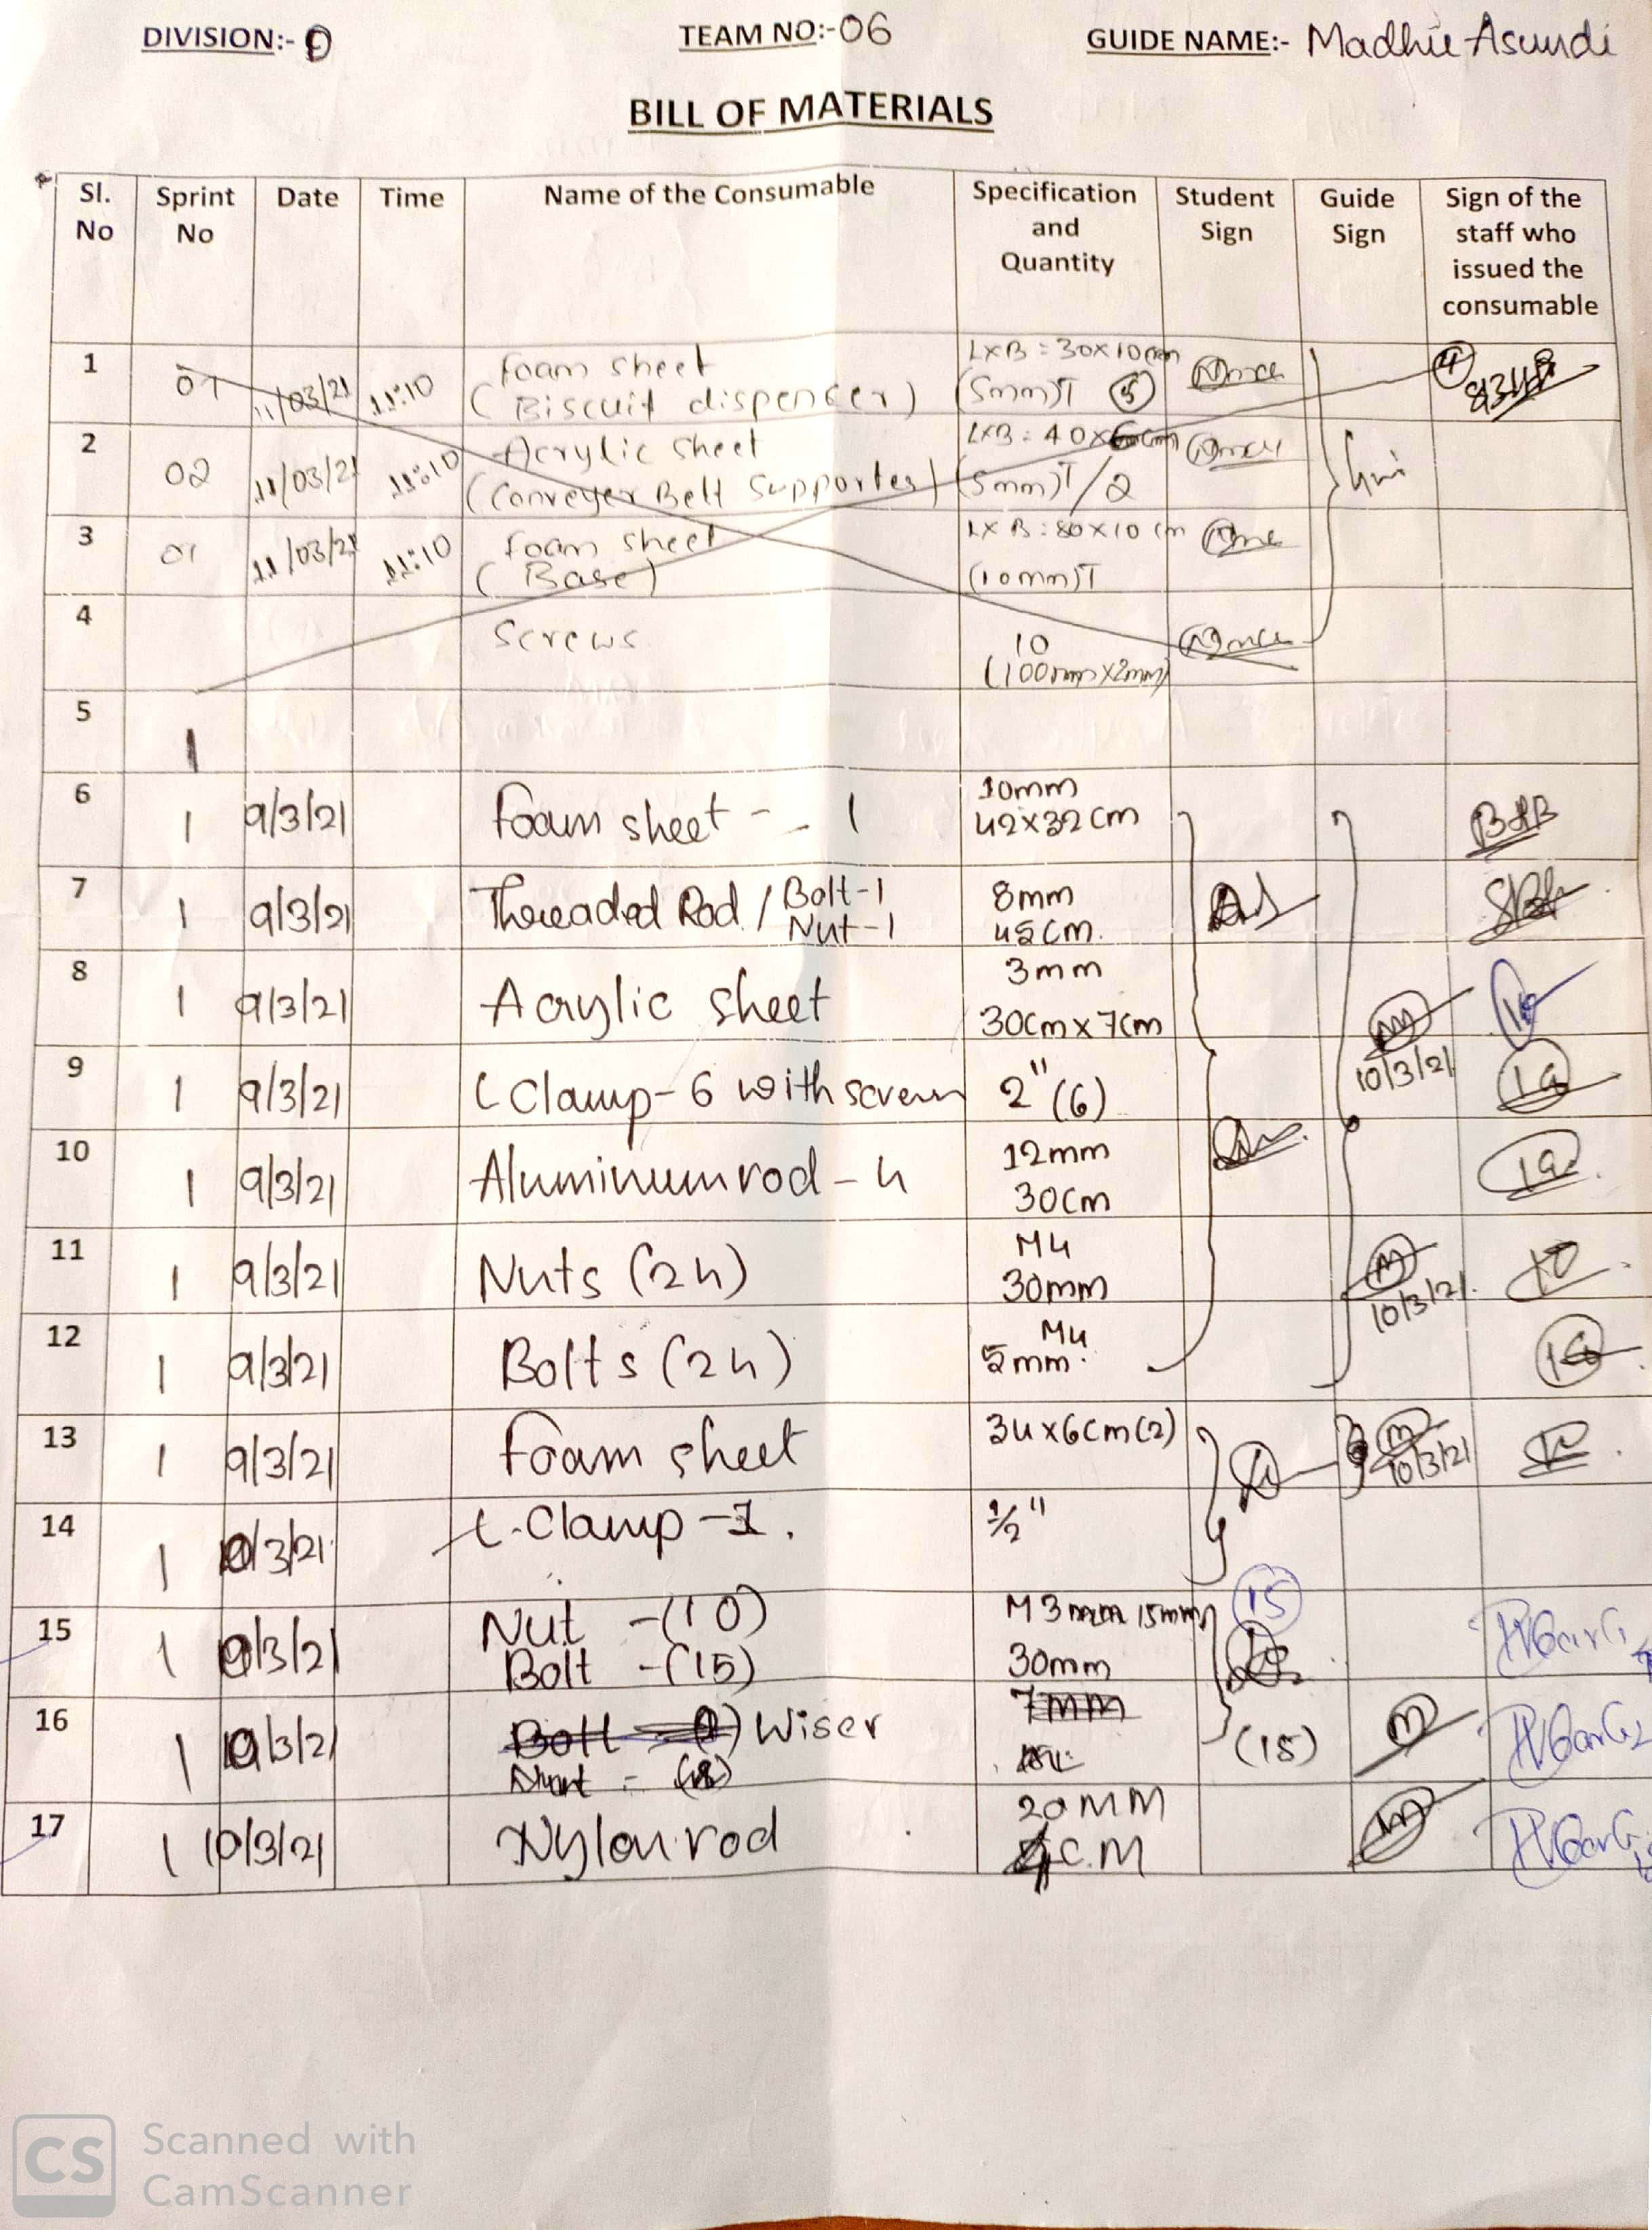 DIVISION:- D
TEAM NO:-06
GUIDE NAME:- Madhu Asundi
BILL OF MATERIALS
Sl. No Sprint No Date Time Name of the Consumable Specification and Quantity Student Sign Guide Sign Sign of the staff who issued the consumable
1 01 11/03/21 11:10 foam sheet LxB = 30x10cm
(Biscuit dispencer) (5mm)T 5
2 02 11/03/21 11:10 Acrylic sheet LxB: 40x6cm
(Conveyer Belt Supporter) (5mm)T/2
3 01 11/03/21 11:10 foam sheet LxB: 80x10 cm
(Base) (10mm)T
4 Screws 10
(100mmx2mm)
5 1
6 1 9/3/21 foam sheet - - 1 10mm
42x32cm
7 1 9/3/21 Threaded Rod / Bolt-1 8mm
Nut-1 45cm.
8 1 9/3/21 Acrylic sheet 3mm
30cmx7cm
10/3/21
9 1 9/3/21 C Clamp-6 with screws 2" (6)
10 1 9/3/21 Aluminum rod - 4 12mm
30cm
11 1 9/3/21 Nuts (24) M4
30mm
10/3/21.
12 1 9/3/21 Bolts (24) M4
5mm.
13 1 9/3/21 foam sheet 34x6cm(2)
10/3/21
14 1 10/3/21 C-Clamp-1. 1/2"
15 1 10/3/21 Nut -(10) M3mm 15mm 15
Bolt -(15) 30mm
16 1 10/3/21 Bolt Wiser 7mm
(15)
17 1 10/3/21 Nylon rod 20MM
C.M
CS Scanned with
CamScanner